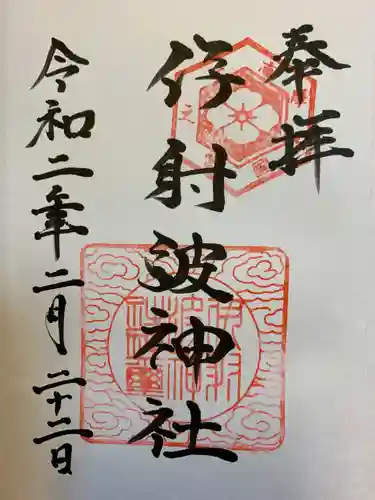 奉拝
伊射波神社
令和二年二月二十二日